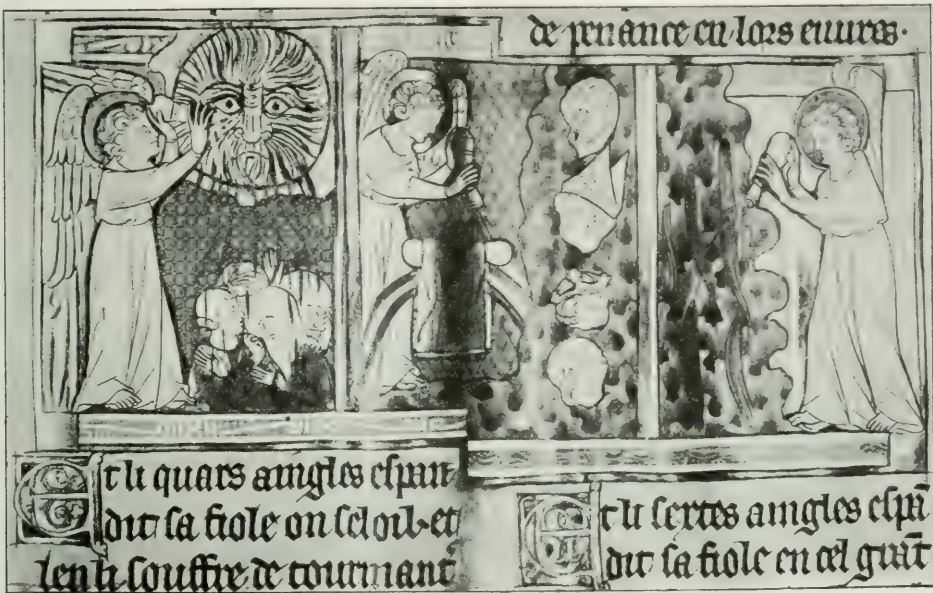 de penance en lors euures·
Et li quars aingles espan
dit sa fiole on soloil· et
len li souffre de tourmant
Et li sextes aingles espā
dit sa fiole en cel grāt